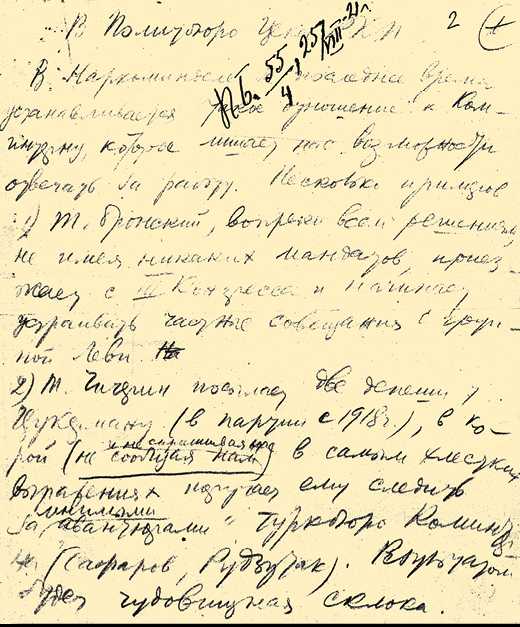 В Политбюро Цека РКП
2
П.б. 55/4, 25/VIII-21 г.
В Наркоминделе в последнее время
устанавливается такое отношение к Ком-
интерну, которое лишает нас возможности
отвечать за работу. Несколько примеров
1) Т. Бронский, вопреки всем решениям,
не имея никаких мандатов, приез-
жает с III Конгресса и начинает
устраивать частные совещания с групп-
ной Леви.
2) Т. Чичерин посылает две депеши т.
Цукерману (в партии с 1918 г.), в ко-
и не спрашивая нас
рой (не сообщая нам) в самых хлестких
выражениях поручает ему следить
мнимыми
за "авантюрами" Туркбюро Коминтер
на (Сафаров, Рудзутак). Результатом
будет чудовищная склока.